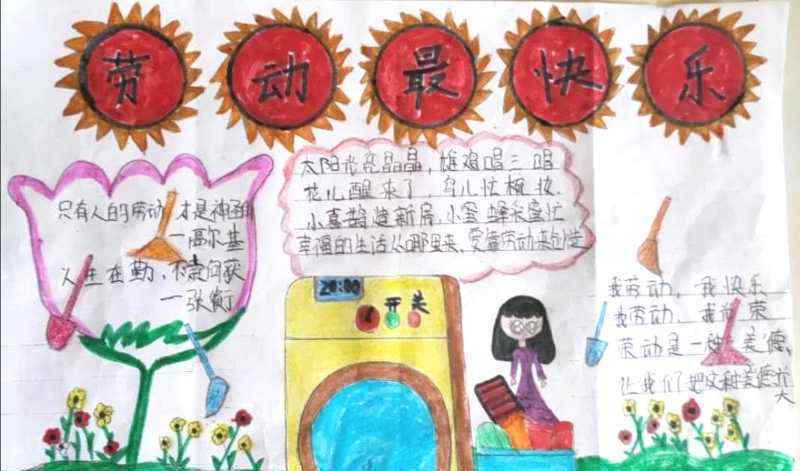 劳动最快乐
只有人的劳动才是神圣的
一高尔基
人生在勤、不索何获
一张衡
太阳光亮晶晶，雄鸡唱三唱
花儿醒来了 鸟儿忙梳妆
小喜鹊造新房，小蜜蜂采蜜忙
幸福的生活从哪里来，要靠劳动来创造
20:00
开关
我劳动，我快乐
我劳动、我光荣
劳动是一种美德，
让我们把这种美德放大